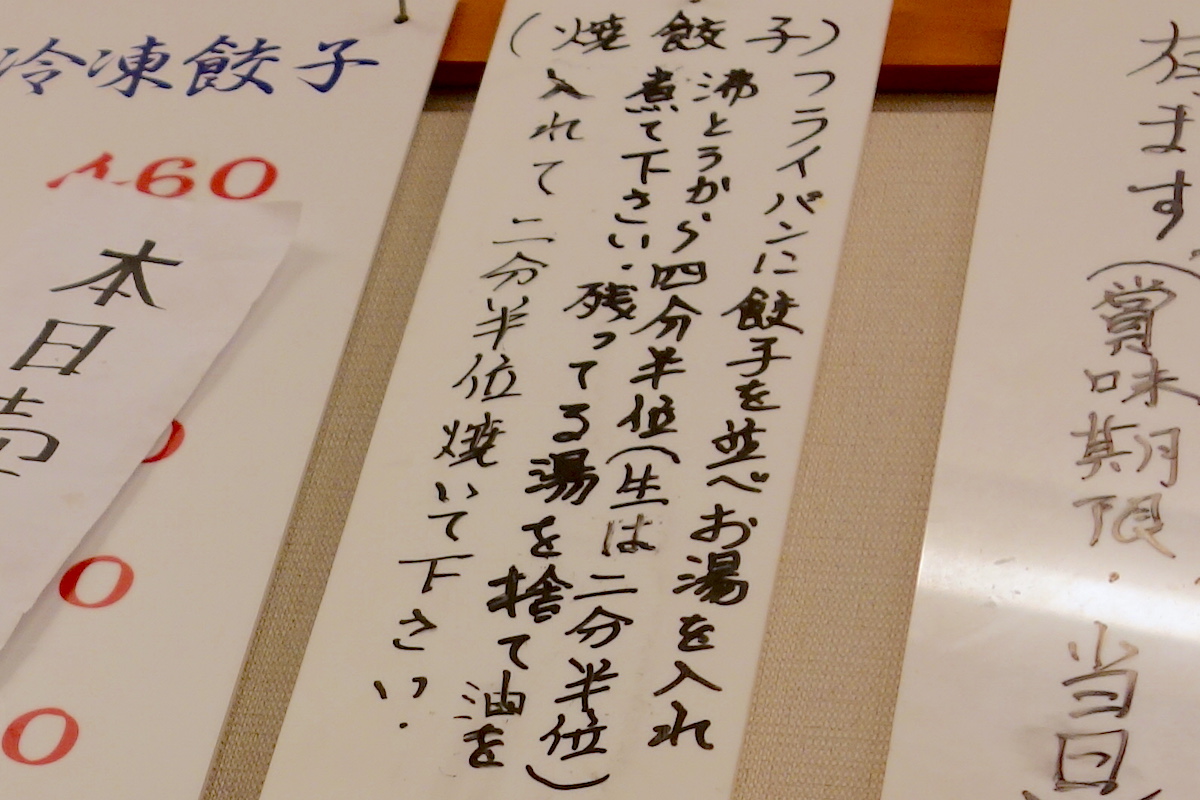 在ます
(賞味期限.当日
(焼餃子)
フライパンに餃子を並べお湯を入れ
沸とうから四分半位(生は二分半位)
煮て下さい.残ってる湯を捨て油を
入れて二分半位焼いて下さい.
冷凍餃子
60
本日
0
0